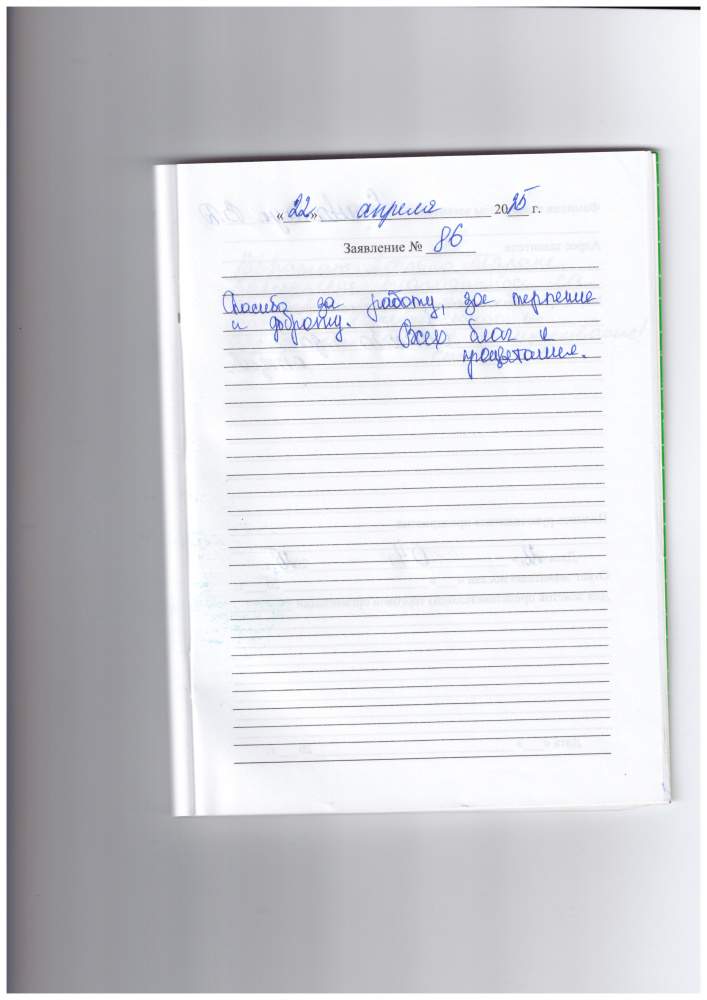 «22» апреля 2025 г.
Заявление № 86
Спасибо за работу, за терпение
и доброту. Всех благ и
процветания.